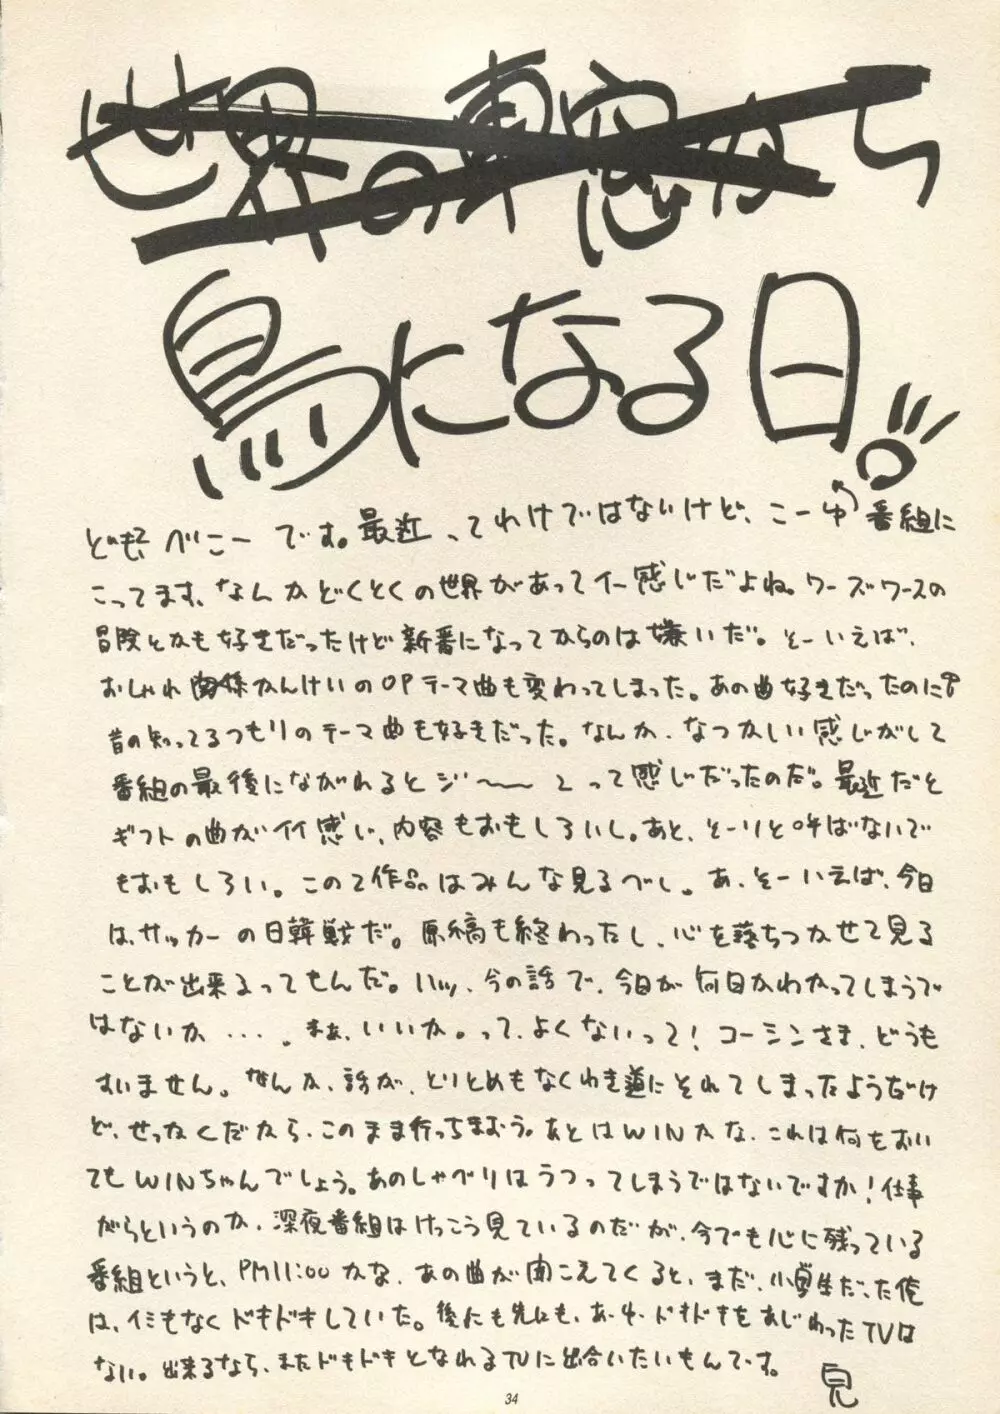 世界の車窓から
鳥になる日。
ども、べにーです。最近ってわけではないけど、こーゆ番組に
こってます、なんかどくとくの世界があってイー感じだよね。ワーズワースの
冒険とかも好きだったけど新番になってからのは嫌いだ。そーいえば、
おしゃれ関係かんけいのOPテーマ曲も変わってしまった。あの曲好きだったのに
昔の知ってるつもりのテーマ曲も好きだった。なんか、なつかしい感じがして
番組の最後にながれるとジ〜〜ンって感じだったのだ。最近だと
ギフトの曲がイイ感じ、内容もおもしろいし。あと、そーりと呼ばないで
もおもしろい。この2作品はみんな見るべし。あ、そーいえば、今日
は、サッカーの日韓戦だ。原稿も終わったし、心を落ちつかせて見る
ことが出来るってもんだ。ハッ、今の話で、今日が何日かわかってしまうで
はないか・・・。まぁ、いいか。って、よくないって!コーシンさま、どうも
すいません。なんか、話が、とりとめもなくわき道にそれてしまったようだけ
ど、せっかくだから、このまま行っちまおう。あとはWINかな、これは何をおい
てもWINちゃんでしょう。あのしゃべりはうつってしまうではないですか!仕事
がらというのか、深夜番組はけっこう見ているのだが、今でも心に残っている
番組というと、PM11:00かな、あの曲が聞こえてくると、まだ、小学生だった俺
は、イミもなくドキドキしていた。後にも先にも、あゝゆ、ドキドキをあじわったTVは
ない。出来るなら、またドキドキとなれるTVに出合いたいもんです。
34